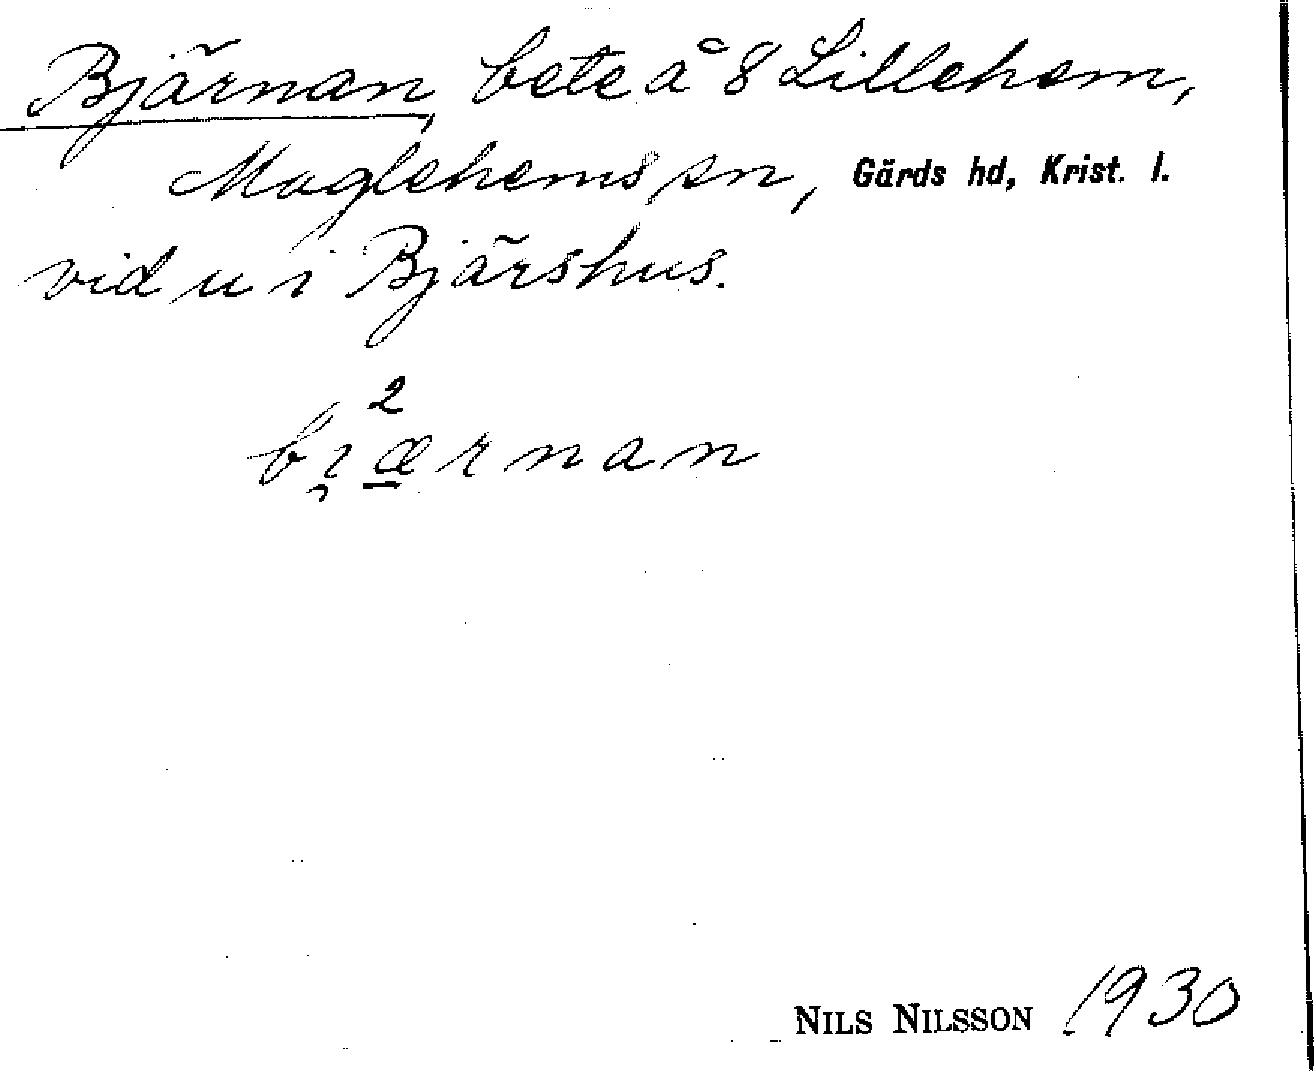 Bjärnan, bete å 8 Lillehem,
Maglehems sn, Gärds hd, Krist. l.
vid u i Bjärshus.
2
bi̯æ̱rnan
NILS NILSSON 1930